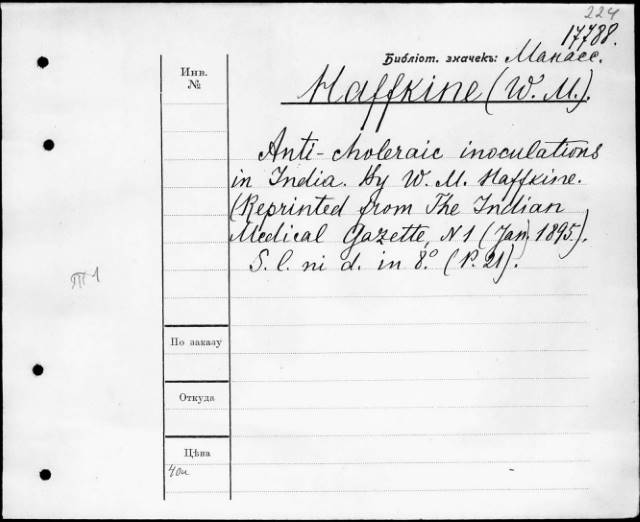 224
17788.
Библіот. значекъ: Манасс.
Инв.
№
Haffkine (W. M.).
Anti-choleraic inoculations
in India. By W. M. Haffkine.
(Reprinted from The Indian
Medical Gazette, N 1 (Jan. 1895).
S. l. ni d. in 8.° (P. 21).
По заказу
Откуда
Цѣна